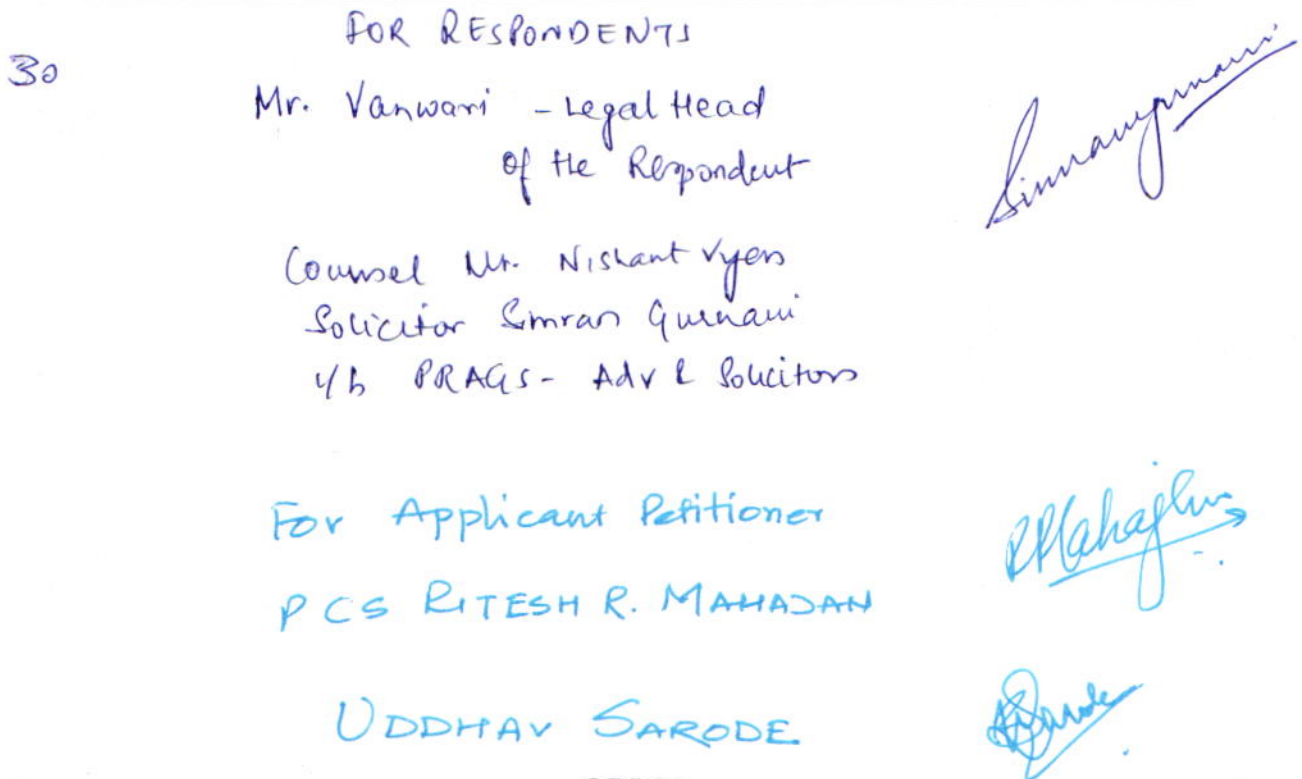 FOR RESPONDENTS
30
Mr. Vanwari - Legal Head
of the Respondent
Simrangurnani
Counsel Mr. Nishant Vyas
Solicitor Simran Gurnani
i/b PRAGS - Adv & Solicitors
For Applicant Petitioner
RMahajan
PCS RITESH R. MAHAJAN
UDDHAV SARODE
Sarode